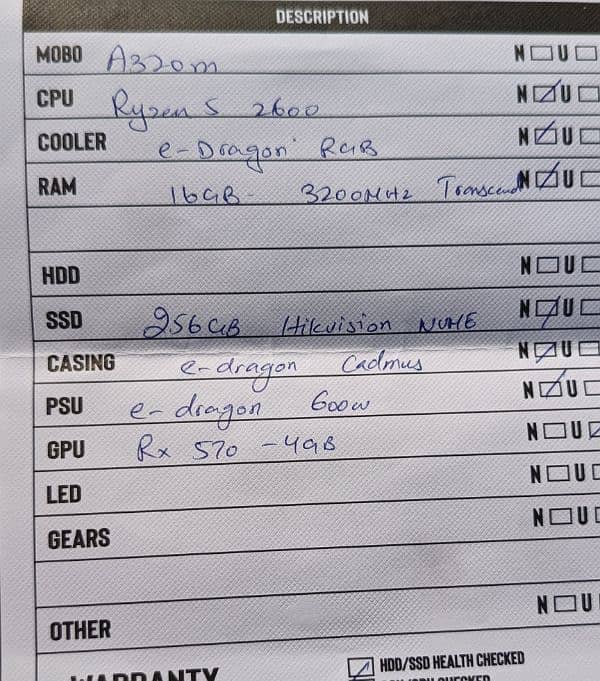 DESCRIPTION
MOBO A320m N U
CPU Ryzen 5 2600 N U
COOLER e-Dragon RGB N U
RAM 16GB - 3200MHz Transcend N U
HDD N U
SSD 256GB Hikvision NVME N U
CASING e-dragon Cadmus N U
PSU e-dragon 600w N U
GPU Rx 570 - 4GB N U
LED N U
GEARS N U
OTHER N U
WARRANTY
HDD/SSD HEALTH CHECKED